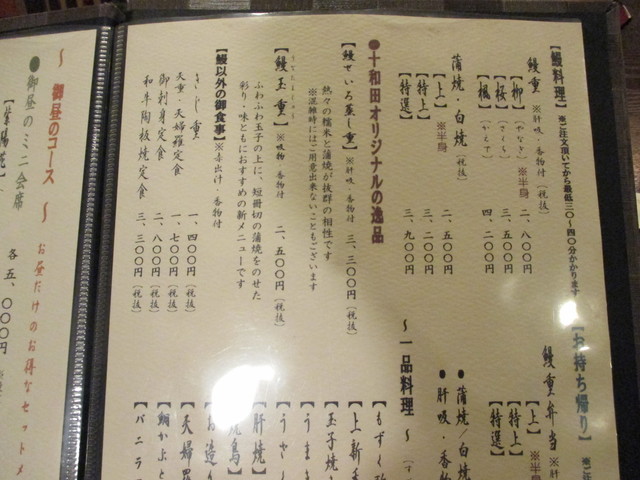 【鰻料理】 ※ご注文頂いてから最低三〇〜四〇分かかります
鰻重 ※肝吸・香物付 (税抜)
【柳】(やなぎ)※半身 二、八〇〇円
【桜】(さくら) 三、五〇〇円
【楓】(かえで) 四、二〇〇円
蒲焼・白焼 (税抜)
【上】※半身 二、五〇〇円
【特上】 三、二〇〇円
【特選】 三、九〇〇円
●十和田オリジナルの逸品
【鰻せいろ蒸し重】※肝吸・香物付 三、三〇〇円(税抜)
熱々の糯米と蒲焼が抜群の相性です
※混雑時にはご用意出来ないこともございます
【鰻玉重】※吸物 香物付 二、五〇〇円(税抜)
ふわふわ玉子の上に、短冊切の蒲焼をのせた
彩り・味ともにおすすめの新メニューです
【鰻以外の御食事】※赤出汁・香物付
きじ重 一、四〇〇円(税抜)
天重・天婦羅定食 一、七〇〇円(税抜)
御刺身定食 二、八〇〇円(税抜)
和牛陶板焼定食 三、三〇〇円(税抜)
【お持ち帰り】
鰻重弁当 ※肝
【上】※半
【特上】
【特選】
●蒲焼/白焼
●肝吸・香物
〜 一品料理 〜
【もずく
【上新香
【玉子焼
【うまき
【うざく
【肝焼
焼鳥
【お造り
【天婦羅
【鯛かぶと
【バニラ
〜 御昼のコース 〜 お昼だけのお得なセットメ
●御昼のミニ会席
各五、〇〇〇円